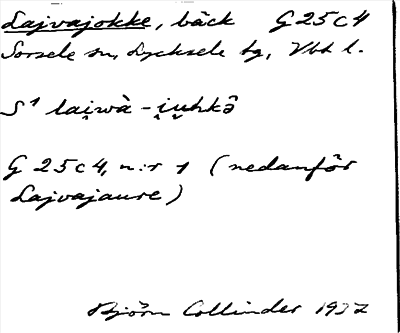 Lajvajokke, bäck G25c4
Sorsele sn, Lycksele tg, Vbt l.
S¹ lai̯wà-i̯u̯hkə̂
G 25c4, n:r 1 (nedanför
Lajvajaure)
Björn Collinder 1937